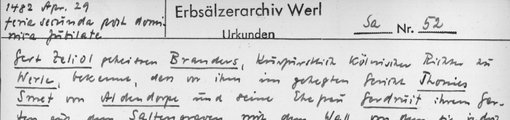 1482 Apr. 29
feria secunda post domi-
nica Jubilate
Erbsälzerarchiv Werl
Urkunden
Sa Nr. 52
Gert Zeliol geheiten Branders, Kurfürstlich Kölnischer Richter zu
Werle, bekennt, dass vor ihm im gehegten Gericht Thonies
Smet von Aldendorpe und seine Ehefrau Gerdruit ihrem Gar-
ten auf dem Saltengraven mit dem Wall von dem